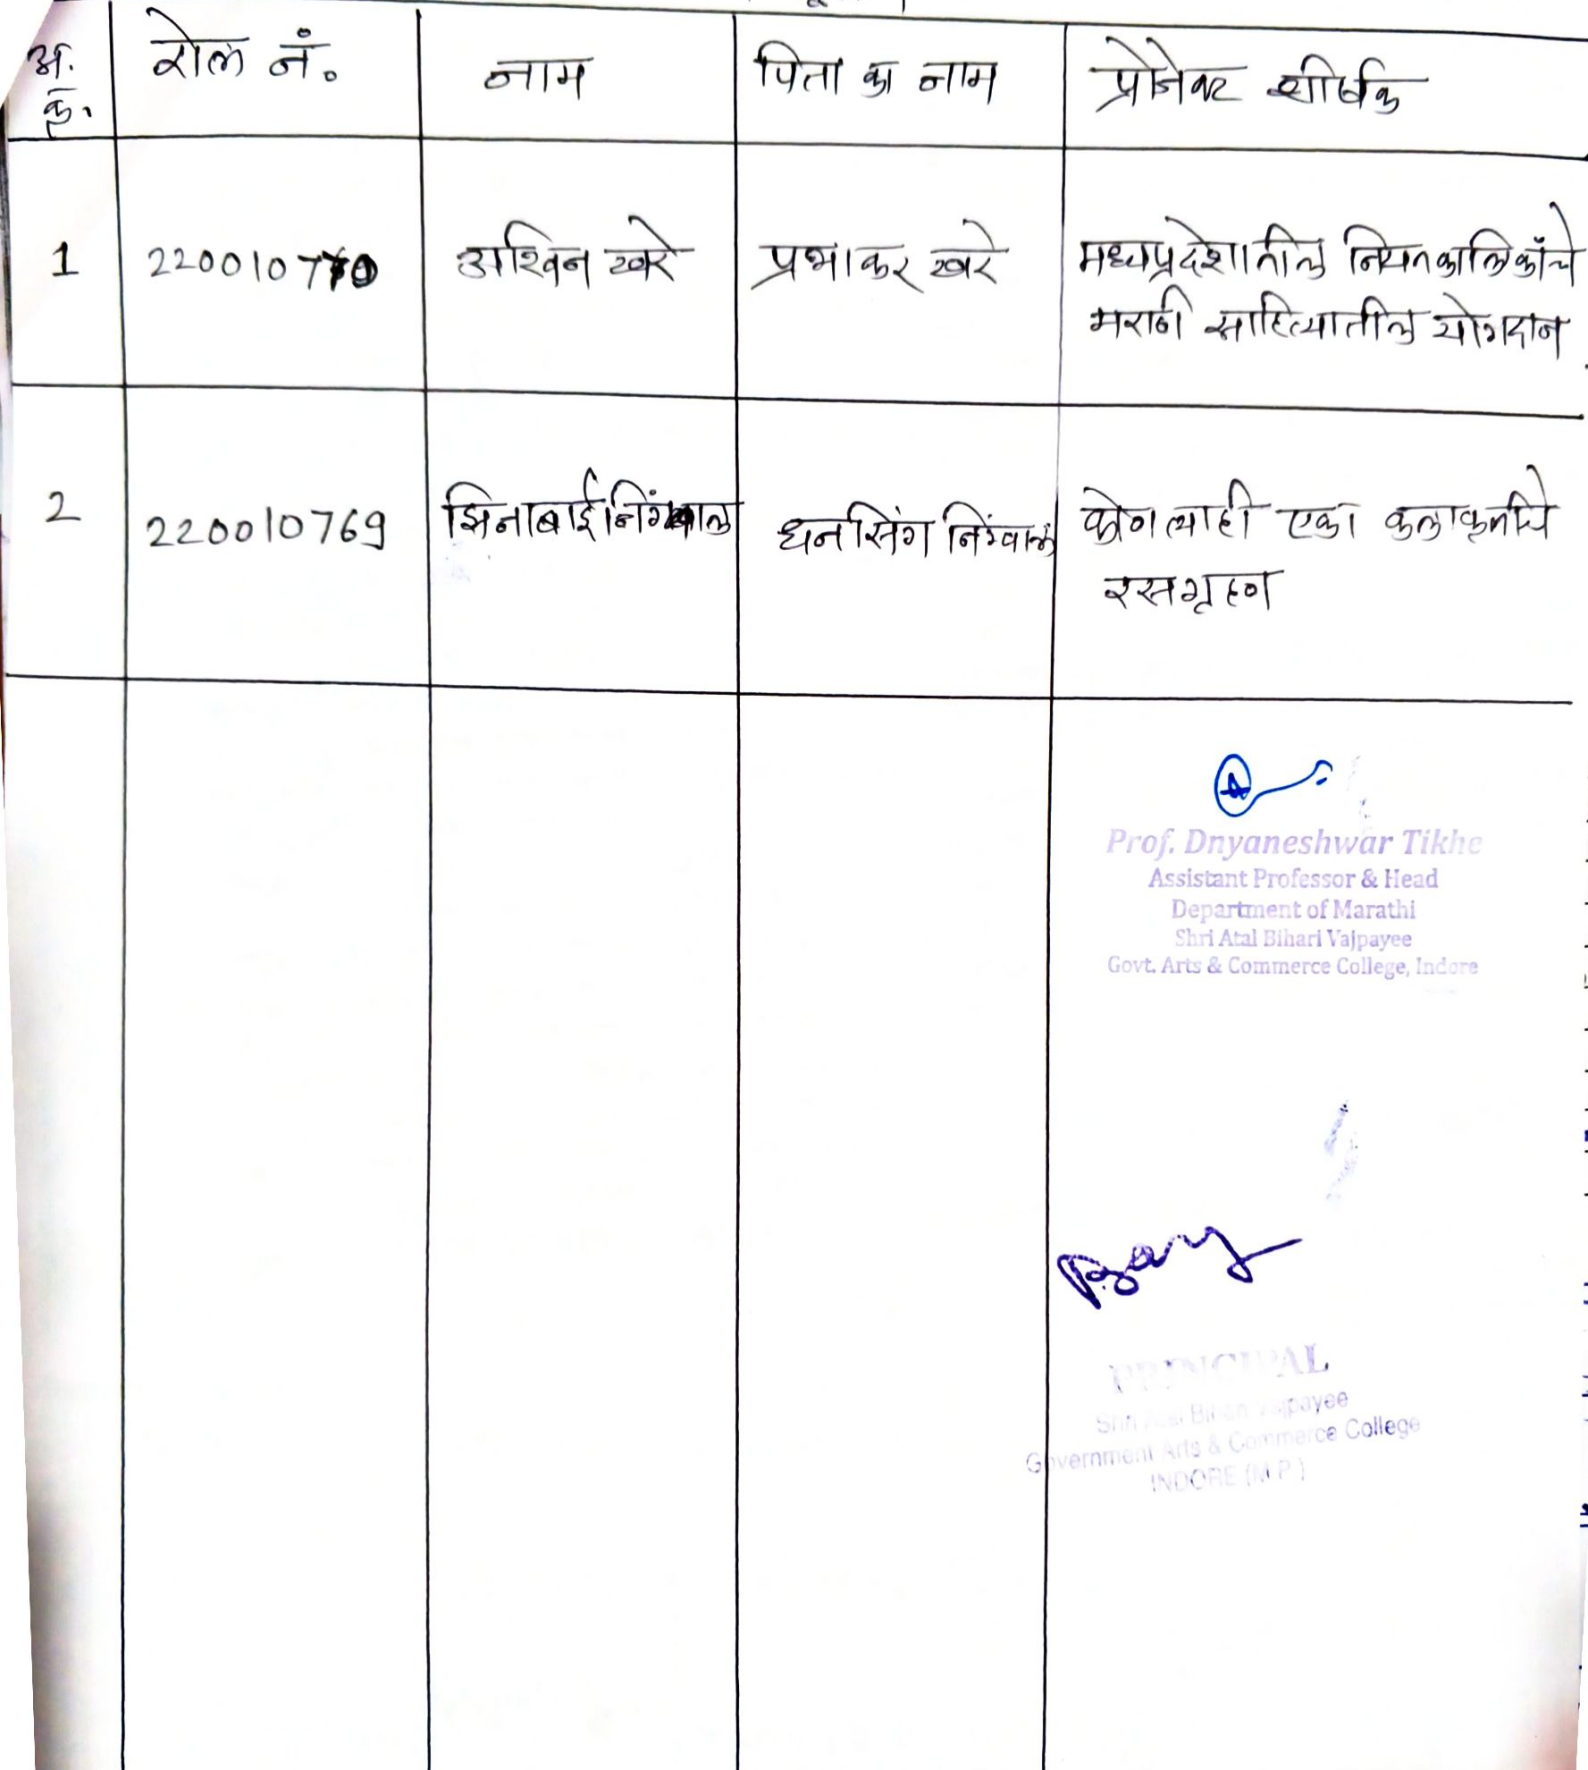 अ. क्र. रोल नं. नाम पिता का नाम प्रोजेक्ट शीर्षक
1 220010770 अश्विन खरे प्रभाकर खरे मध्यप्रदेशातील नियतकालिकांचे
मराठी साहित्यातील योगदान
2 220010769 झिनाबाई निंगवाल धनसिंग निंगवाल कोणत्याही एका कलाकृतीचे
रसग्रहण
Prof. Dnyaneshwar Tikhe
Assistant Professor & Head
Department of Marathi
Shri Atal Bihari Vajpayee
Govt. Arts & Commerce College, Indore
PRINCIPAL
Shri Atal Bihari Vajpayee
Government Arts & Commerce College
INDORE (M.P.)